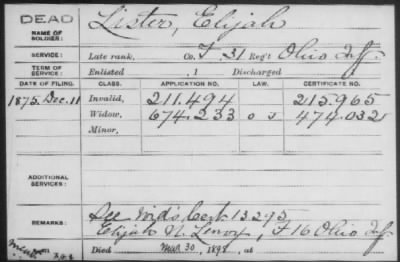 DEAD
NAME OF SOLDIER: Lister, Elijah
SERVICE: Late rank, Co. F. 31 Reg't Ohio Inf.
TERM OF SERVICE: Enlisted , 1 Discharged
DATE OF FILING. CLASS. APPLICATION NO. LAW. CERTIFICATE NO.
1875. Dec. 11 Invalid, 211.494 215.965
Widow, 674.233 474.032
Minor,
ADDITIONAL SERVICES:
REMARKS: See Wid's Cert 13295
Elijah N. , F 16 Ohio Inf.
Died Mar 30, 189 , at